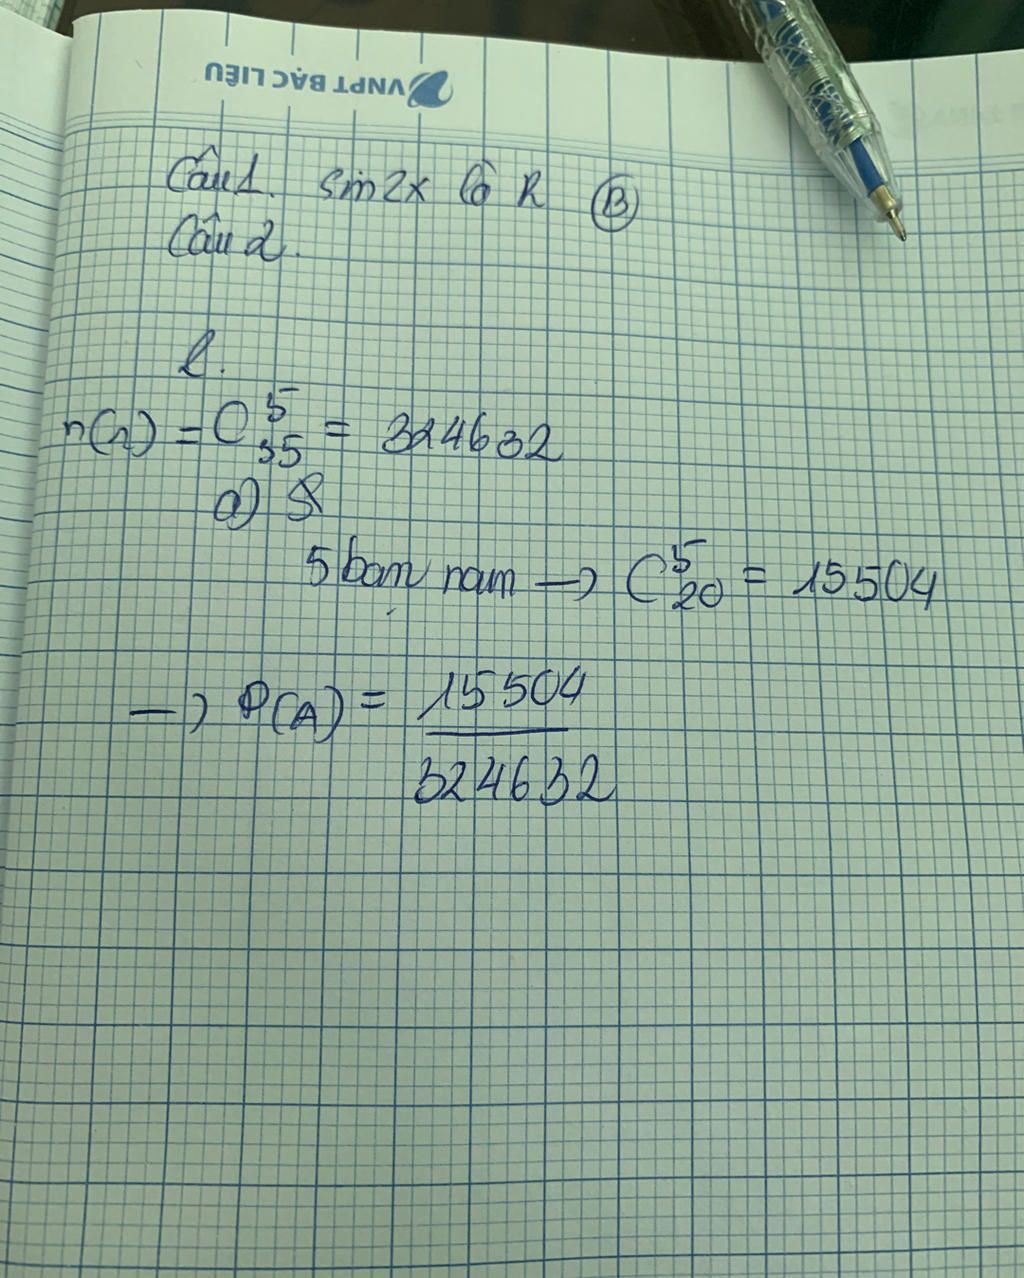 VNPT BẠC LIÊU
Câu 1. sin2x Có R Ⓑ
Câu 2.
l.
n(Ω) = C⁵₃₅ = 324632
a) S
5 bạn nam → C⁵₂₀ = 15504
→ P(A) = 15504
324632